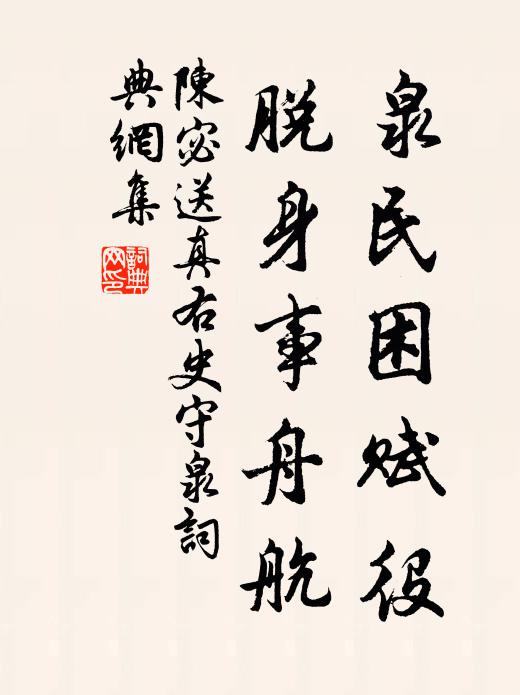 泉民困賦役
脫身事舟航
陳宓送真右史守泉詞
典網集
詞典
网印